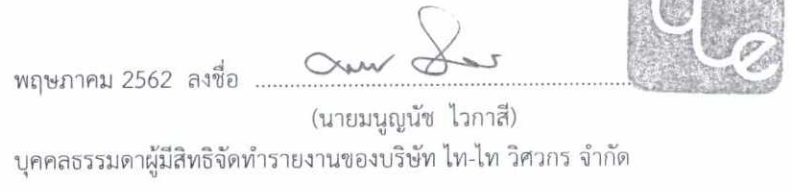 พฤษภาคม 2562 ลงชื่อ ................................................................
(นายมนูญนัช ไวกาสี)
บุคคลธรรมดาผู้มีสิทธิจัดทำรายงานของบริษัท ไท-ไท วิศวกร จำกัด